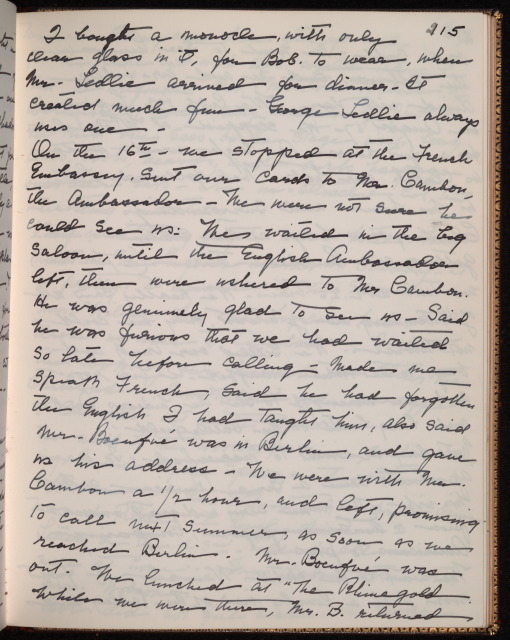 215
I bought a monocle, with only
clear glass in it, for Bob. to wear, when
Mr. Ledlie arrived for dinner - It
created much fun - George Ledlie always
wus one -
On the 16th - we stopped at the French
Embassy. Sent our cards to Mr. Cambon,
the Ambassador - We were not sure he
could see us: We waited in the big
Saloon, until the English Ambassador
left, then were ushered to Mr Cambon.
He was genuinely glad to see us - Said
he was furious that we had waited
so late before calling - Made me
speak French, Said he had forgotten
the English I had taught him, also said
Mr. Boeufvé was in Berlin, and gave
us his address - We were with Mr.
Cambon a 1/2 hour, and left, promising
to call next Summer, as soon as we
reached Berlin. Mr. Boeufvé was
out. We lunched at "The Rhinegold.
While we were there, Mr. B. returned